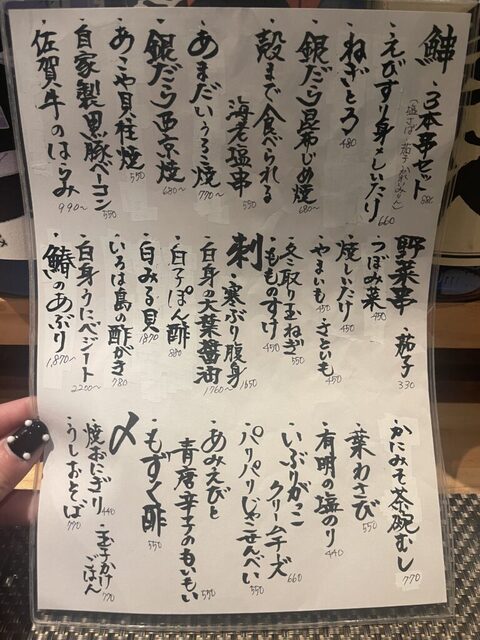 ・3本串セット
(塩さば 茄子 かれいみりん) 880
・えびすり身としいたけ 660
・ねぎとろ 480
・銀だら昆布じめ焼 680〜
・殻まで食べられる
海老塩串 550
・あまだいうろこ焼 770〜
・銀だら西京焼 680〜
・あこや貝柱焼 550
・自家製黒豚ベーコン 550
・佐賀牛のはらみ 990〜
野菜串
・茄子 330
・つぼみ菜 450
・焼しいたけ 450
・やまいも 450
・さといも 450
・冬取り玉ねぎ 550
・もものすけ 450
刺
・寒ぶり腹身 1650
・白身の大葉醤油 1760〜
・白子ぽん酢 880
・白みる貝 1870
・いろは島の酢がき 780
・白身うにベジート 2200〜
・鰆のあぶり 1870〜
・かにみそ茶碗むし 770
・葉わさび 550
・有明の塩のり 440
・いぶりがっこ
クリームチーズ 660
・パリパリじゃこせんべい 550
・あみえびと
青唐辛子のもいもい 550
・もずく酢 550
〆
・焼おにぎり 440
・玉子かけ
ごはん 770
・うしおとそば 770